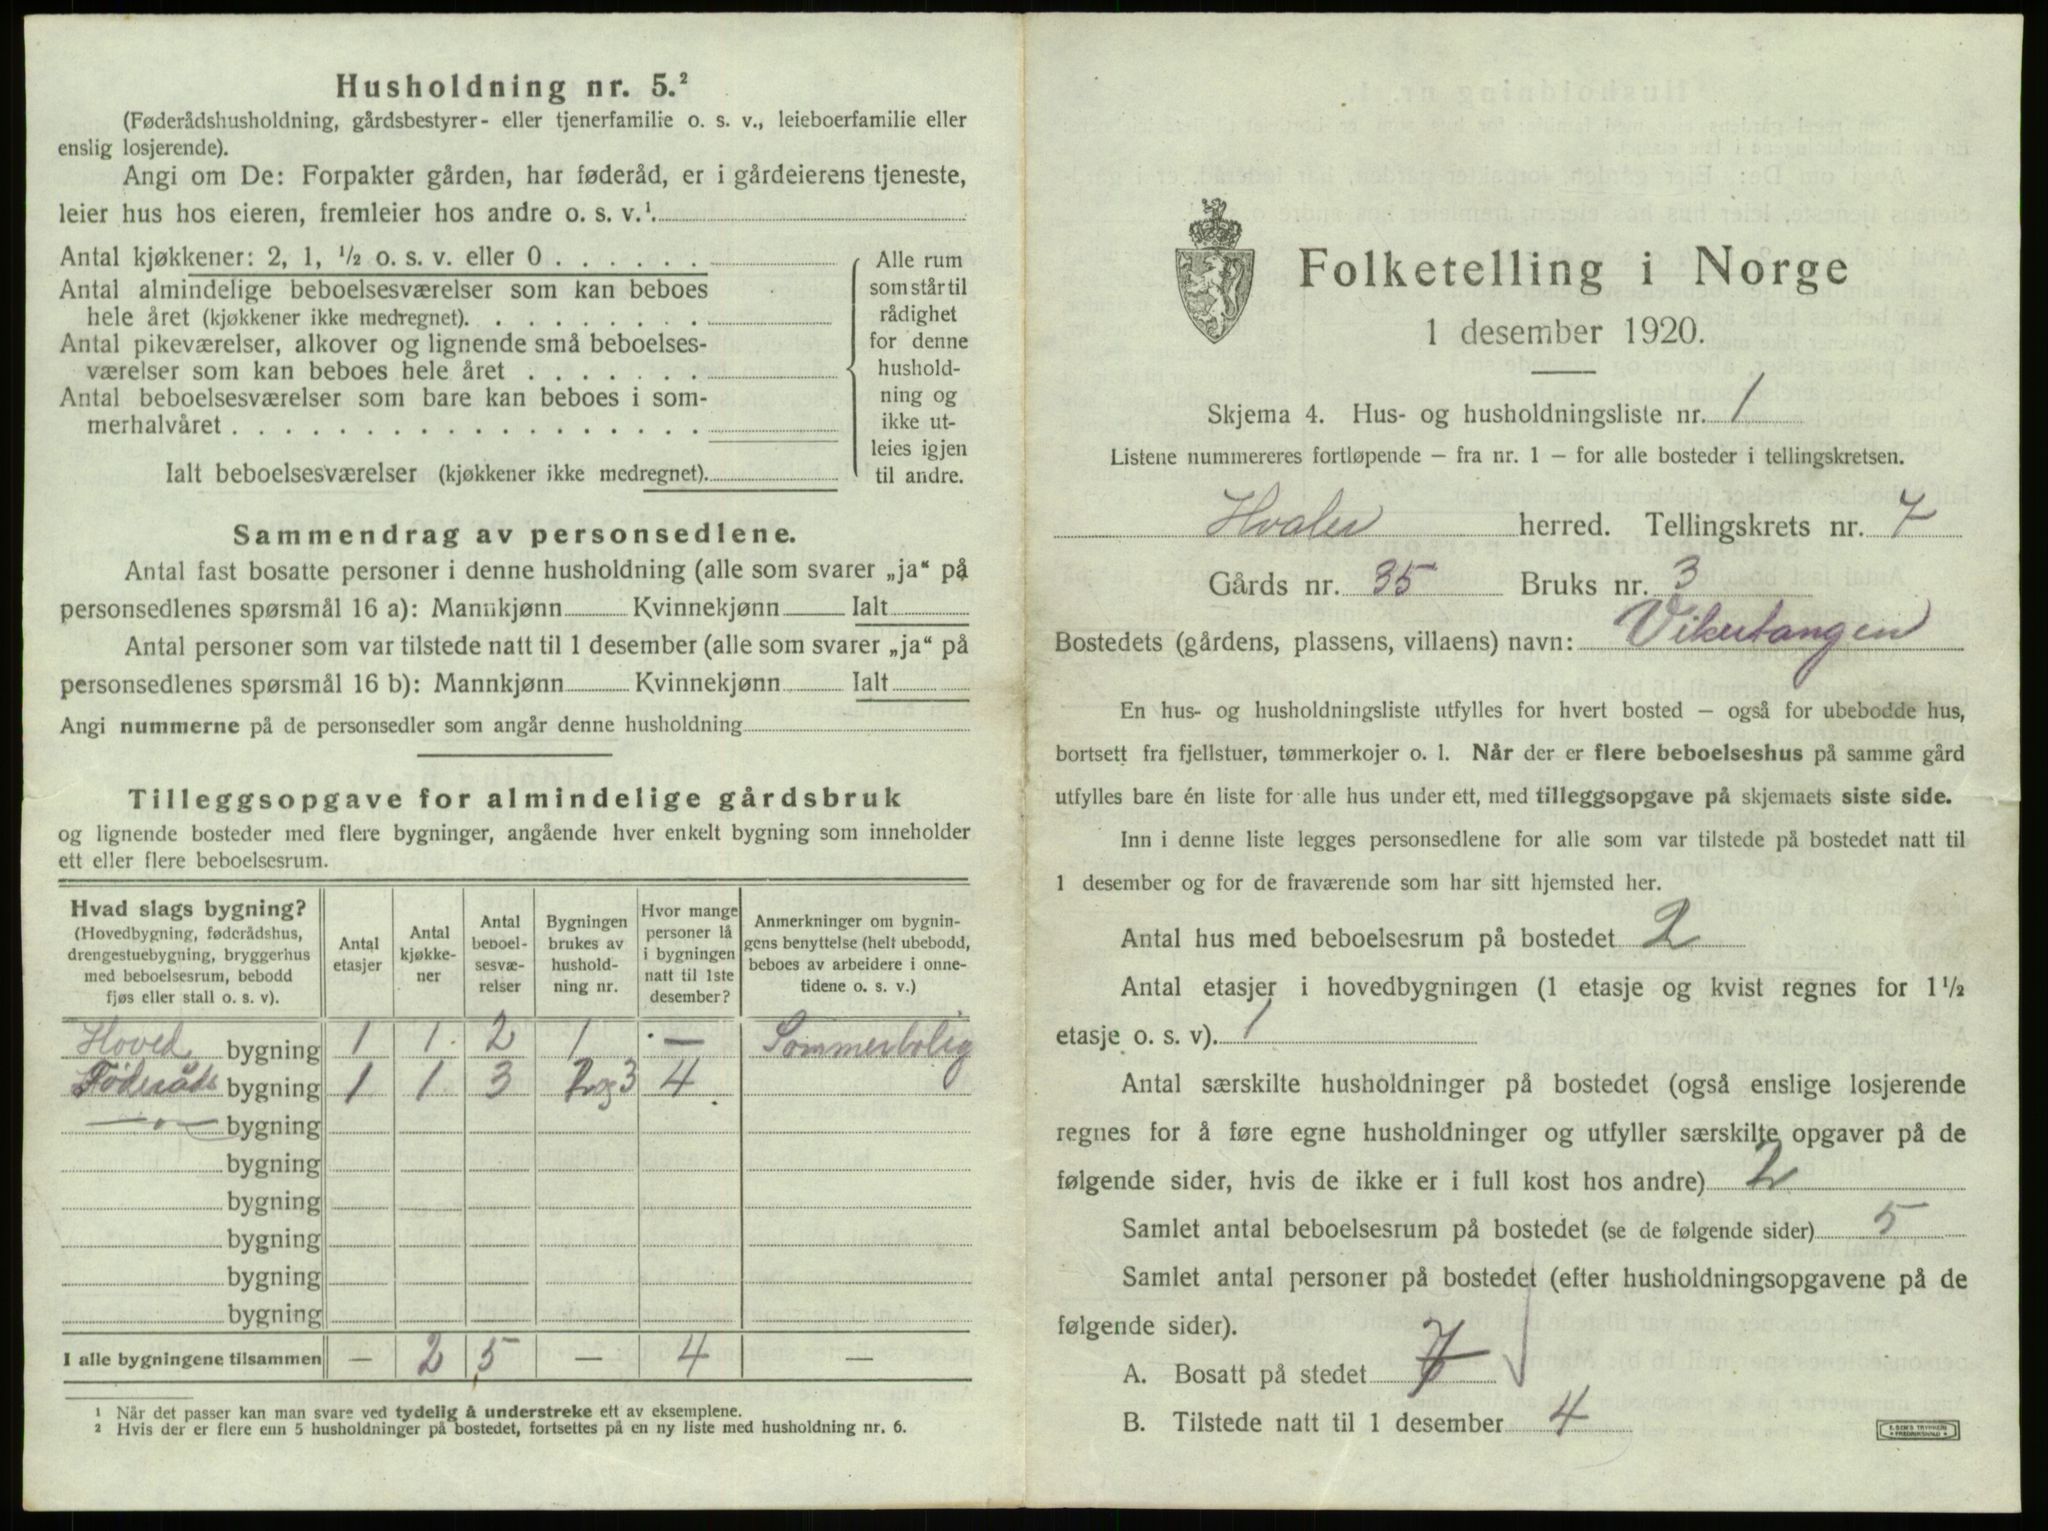 Husholdning nr. 5.²
(Føderådshusholdning, gårdsbestyrer- eller tjenerfamilie o. s. v., leieboerfamilie eller
enslig losjerende).
Angi om De: Forpakter gården, har føderåd, er i gårdeierens tjeneste,
leier hus hos eieren, fremleier hos andre o. s. v.¹
Antal kjøkkener: 2, 1, ½ o. s. v. eller 0
Antal almindelige beboelsesværelser som kan beboes
hele året (kjøkkener ikke medregnet)
Antal pikeværelser, alkover og lignende små beboelses-
værelser som kan beboes hele året
Antal beboelsesværelser som bare kan beboes i som-
merhalvåret
Ialt beboelsesværelser (kjøkkener ikke medregnet)
Alle rum
som står til
rådighet
for denne
hushold-
ning og
ikke ut-
leies igjen
til andre.
Sammendrag av personsedlene.
Antal fast bosatte personer i denne husholdning (alle som svarer „ja“ på
personsedlenes spørsmål 16 a): Mannkjønn Kvinnekjønn Ialt
Antal personer som var tilstede natt til 1 desember (alle som svarer „ja“ på
personsedlenes spørsmål 16 b): Mannkjønn Kvinnekjønn Ialt
Angi nummerne på de personsedler som angår denne husholdning
Tilleggsopgave for almindelige gårdsbruk
og lignende bosteder med flere bygninger, angående hver enkelt bygning som inneholder
ett eller flere beboelsesrum.
Hvad slags bygning?
(Hovedbygning, føderådshus,
drengestuebygning, bryggerhus
med beboelsesrum, bebodd
fjøs eller stall o. s. v).
Antal
etasjer
Antal
kjøkke-
ner
Antal
beboel-
sesvæ-
relser
Bygningen
brukes av
hushold-
ning nr.
Hvor mange
personer lå
i bygningen
natt til 1ste
desember?
Anmerkninger om bygnin-
gens benyttelse (helt ubebodd,
beboes av arbeidere i onne-
tidene o. s. v.)
Hoved bygning 1 1 2 1 — Sommerbolig
Föderåds bygning 1 1 3 2 og 3 4
—„— bygning
bygning
bygning
bygning
bygning
bygning
I alle bygningene tilsammen — 2 5 — 4 —
¹ Når det passer kan man svare ved tydelig å understreke ett av eksemplene.
² Hvis der er flere enn 5 husholdninger på bostedet, fortsettes på en ny liste med husholdning nr. 6.
Folketelling i Norge
1 desember 1920.
Skjema 4. Hus- og husholdningsliste nr. 1
Listene nummereres fortløpende — fra nr. 1 — for alle bosteder i tellingskretsen.
Hvaler herred. Tellingskrets nr. 7
Gårds nr. 35 Bruks nr. 3
Bostedets (gårdens, plassens, villaens) navn: Vikertangen
En hus- og husholdningsliste utfylles for hvert bosted — også for ubebodde hus,
bortsett fra fjellstuer, tømmerkojer o. l. Når der er flere beboelseshus på samme gård
utfylles bare én liste for alle hus under ett, med tilleggsopgave på skjemaets siste side.
Inn i denne liste legges personsedlene for alle som var tilstede på bostedet natt til
1 desember og for de fraværende som har sitt hjemsted her.
Antal hus med beboelsesrum på bostedet 2
Antal etasjer i hovedbygningen (1 etasje og kvist regnes for 1½
etasje o. s. v). 1
Antal særskilte husholdninger på bostedet (også enslige losjerende
regnes for å føre egne husholdninger og utfyller særskilte opgaver på de
følgende sider, hvis de ikke er i full kost hos andre) 2
Samlet antal beboelsesrum på bostedet (se de følgende sider) 5
Samlet antal personer på bostedet (efter husholdningsopgavene på de
følgende sider).
A. Bosatt på stedet 7
B. Tilstede natt til 1 desember 4
E. SEM'S TRYKKERI
FREDRIKSHALD